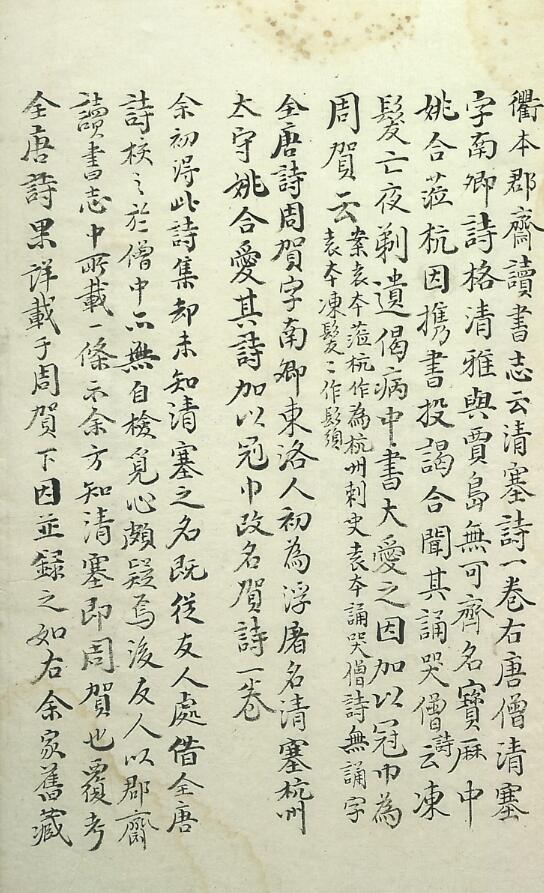 衢本郡齋讀書志云清塞詩一卷右唐僧清塞
字南卿詩格清雅與賈島無可齊名寶厤中
姚合蒞杭因携書投謁合聞其誦哭僧詩云凍
髮亡夜剃遺偈病中書大愛之因加以冠巾為
周賀云
案袁本蒞杭作為杭州刺史袁本誦哭僧詩無誦字
袁本凍髮二作鬚須
全唐詩周賀字南卿東洛人初為浮屠名清塞杭州
太守姚合愛其詩加以冠巾改名賀詩一卷
余初得此詩集却未知清塞之名既從友人處借全唐
詩校之於僧中亦無自檢覓心頗疑焉後友人以郡齋
讀書志中所載一條示余方知清塞即周賀也覆考
全唐詩果詳載于周賀下因並錄之如右余家舊藏